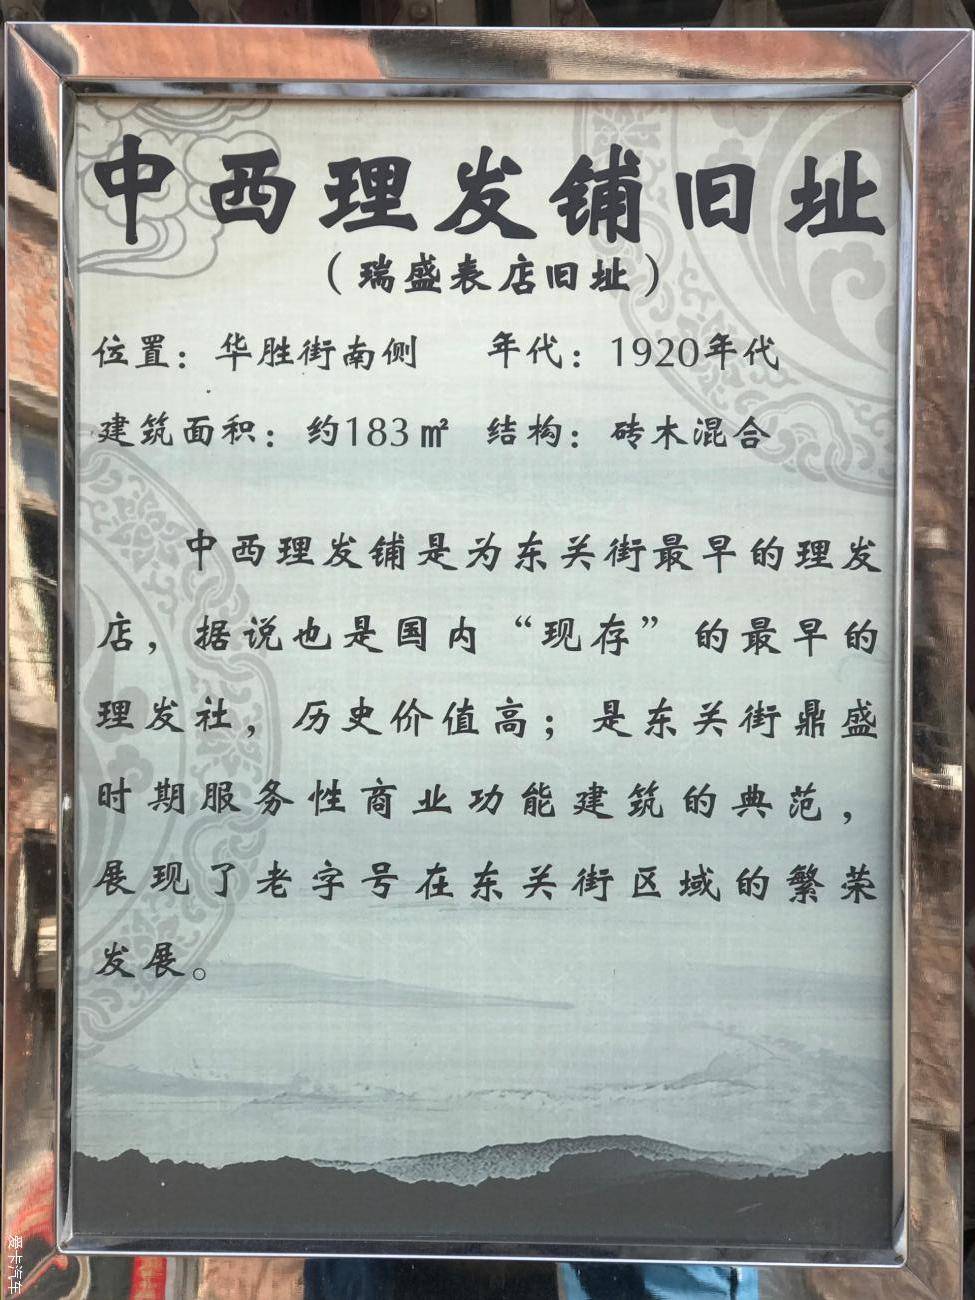 中西理发铺旧址
（瑞盛表店旧址）
位置：华胜街南侧 年代：1920年代
建筑面积：约183㎡ 结构：砖木混合
中西理发铺是为东关街最早的理发
店，据说也是国内“现存”的最早的
理发社，历史价值高；是东关街鼎盛
时期服务性商业功能建筑的典范，
展现了老字号在东关街区域的繁荣
发展。
爱卡汽车